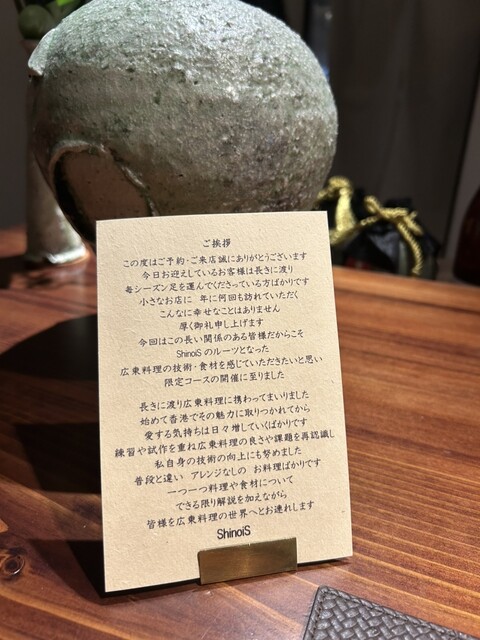 ご挨拶
この度はご予約・ご来店誠にありがとうございます
今日お迎えしているお客様は長きに渡り
毎シーズン足を運んでくださっている方ばかりです
小さなお店に 年に何回も訪れていただく
こんなに幸せなことはありません
厚く御礼申し上げます
今回はこの長い関係のある皆様だからこそ
ShinoiSのルーツとなった
広東料理の技術・食材を感じていただきたいと思い
限定コースの開催に至りました
長きに渡り広東料理に携わってまいりました
始めて香港でその魅力に取りつかれてから
愛する気持ちは日々増していくばかりです
練習や試作を重ね広東料理の良さや課題を再認識し
私自身の技術の向上にも努めました
普段と違い アレンジなしの お料理ばかりです
一つ一つ料理や食材について
できる限り解説を加えながら
皆様を広東料理の世界へとお連れします
ShinoiS